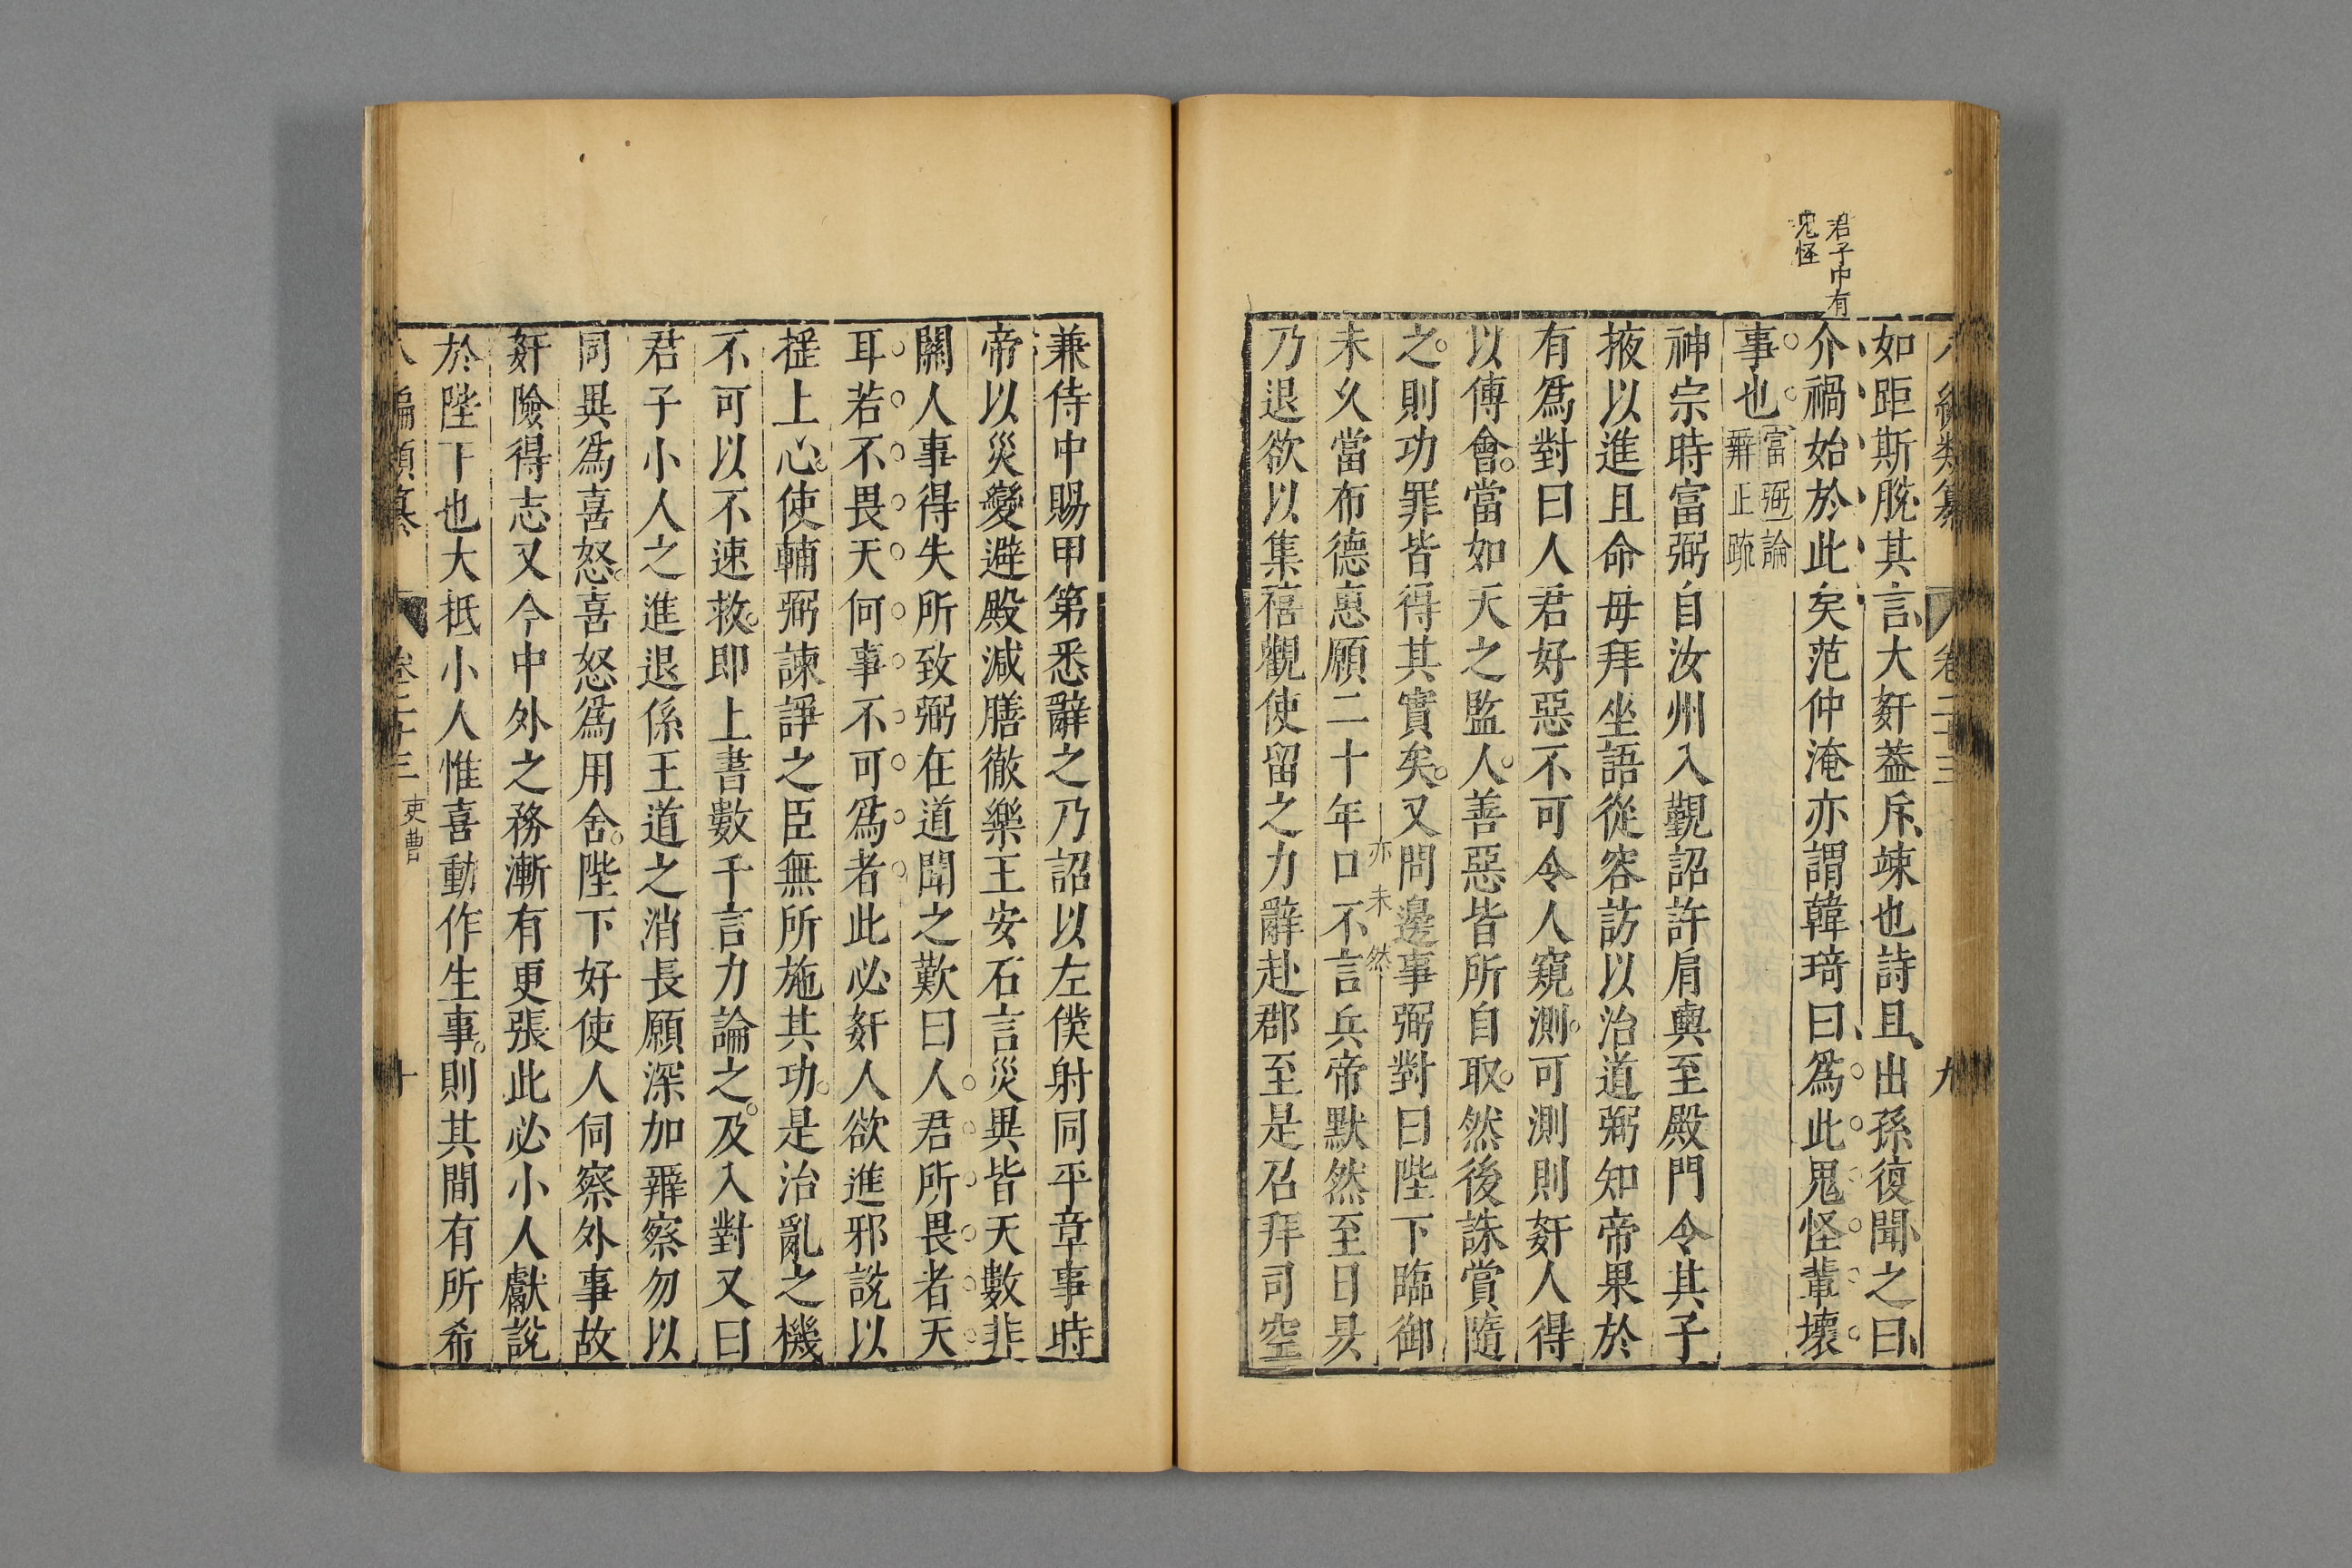 君子中有
鬼怪
八編類纂 卷二十三 九
如距斯脫其言大奸蓋斥竦也詩且出孫復聞之曰
介禍始於此矣范仲淹亦謂韓琦曰爲此鬼怪輩壞
事也富弼論
辨正䟽
神宗時富弼自汝州入覲詔許肩輿至殿門令其子
掖以進且命毋拜坐語從容訪以治道弼知帝果於
有爲對曰人君好惡不可令人窺測可測則奸人得
以傅會當如天之監人善惡皆所自取然後誅賞隨
之則功罪皆得其實矣又問邊事弼對曰陛下臨御
亦未然
未乆當布德惠願二十年口不言兵帝默然至日昃
乃退欲以集禧觀使留之力辭赴郡至是召拜司空
兼侍中賜甲第悉辭之乃詔以左僕射同平章事時
帝以災變避殿減膳徹樂王安石言災異皆天數非
關人事得失所致弼在道聞之歎曰人君所畏者天
耳若不畏天何事不可爲者此必奸人欲進邪說以
搖上心使輔弼諫諍之臣無所施其功是治亂之機
不可以不速救即上書數千言力論之及入對又曰
君子小人之進退係王道之消長願深加辨察勿以
同異爲喜怒喜怒爲用舍陛下好使人伺察外事故
奸險得志又今中外之務漸有更張此必小人獻說
於陛下也大抵小人惟喜動作生事則其間有所希
八編類纂 卷二十三 吏曹 十